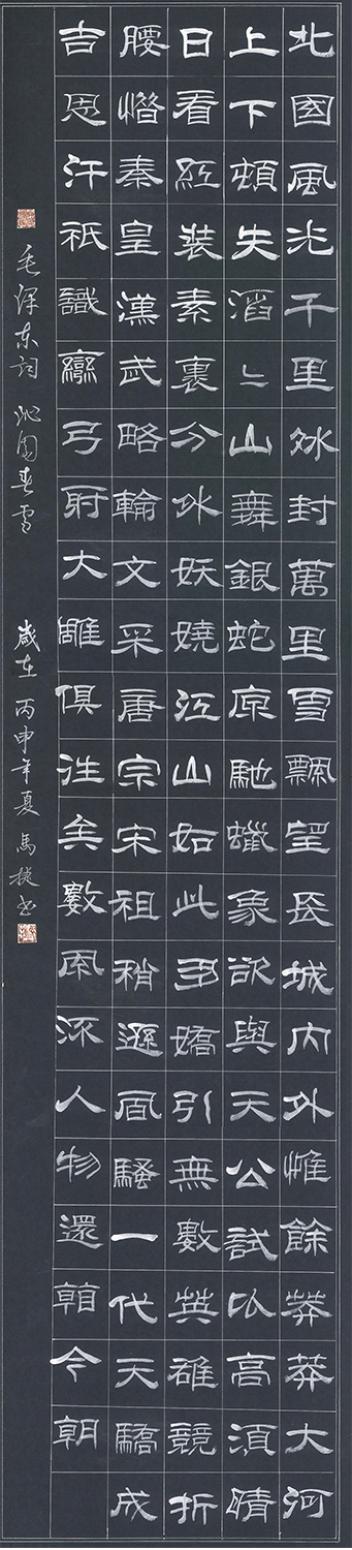 北國風光千里冰封萬里雪飄望長城內外惟餘莽莽大河
上下頓失滔〻山舞銀蛇原馳蠟象欲與天公試比高須晴
日看紅裝素裹分外妖嬈江山如此多嬌引無數英雄競折
腰惜秦皇漢武略輸文采唐宗宋祖稍遜風騷一代天驕成
吉思汗祗識彎弓射大雕俱往矣數風流人物還看今朝
毛泽东词 沁园春雪 歲在丙申年夏 馬 书